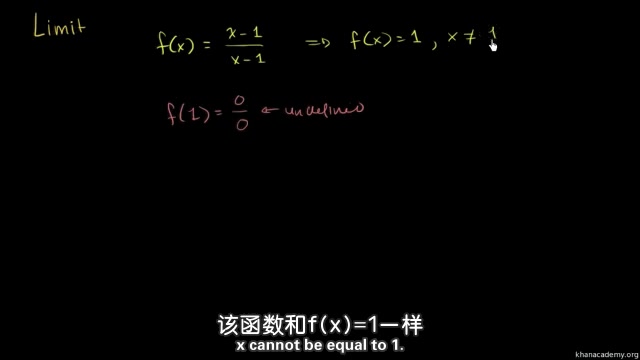 Limit
f(x) = x-1 / x-1 ⇒ f(x) = 1 , x ≠ 1
f(1) = 0/0 ← undefined
该函数和f(x)=1一样
x cannot be equal to 1.
khanacademy.org